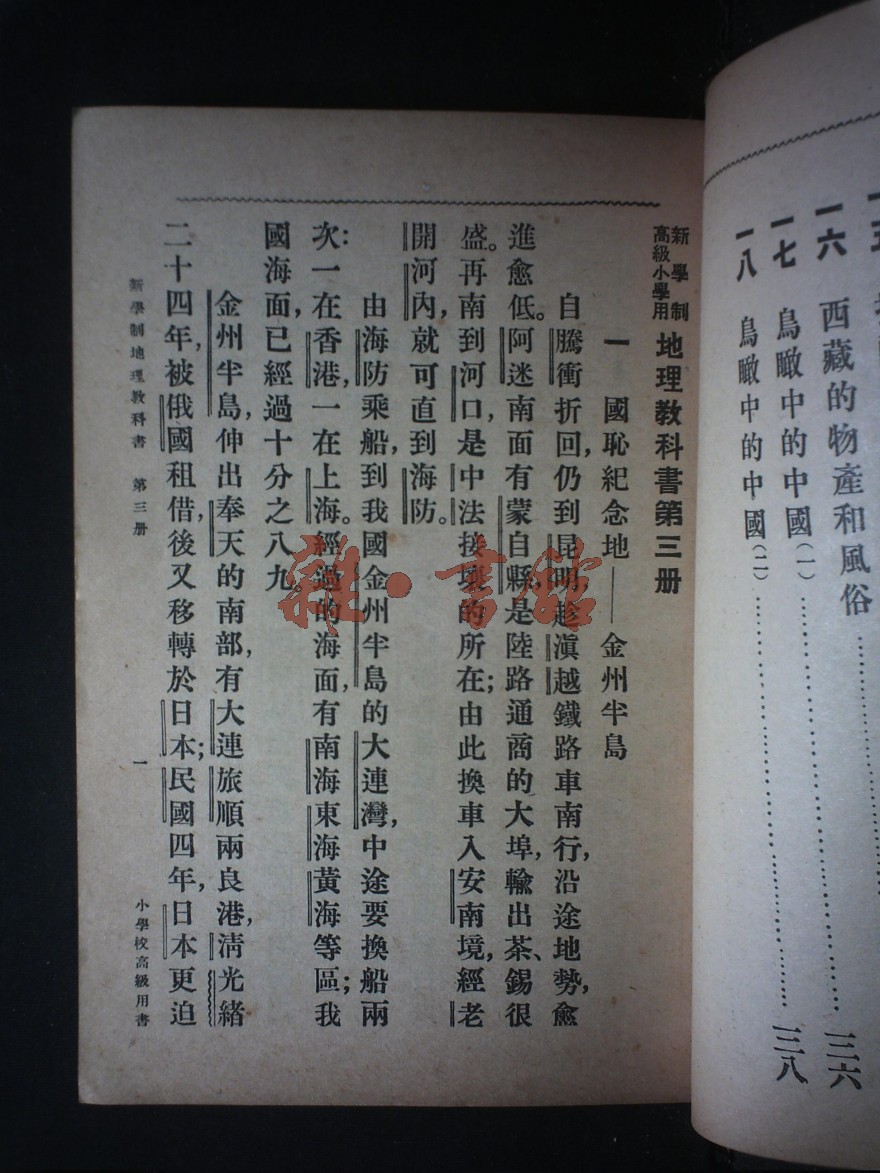 一六 西藏的物產和風俗……三六
一七 鳥瞰中的中國(一)……
一八 鳥瞰中的中國(二)……三八
新學制
高級小學用
地理教科書第三册
一 國恥紀念地——金州半島
自騰衝折回,仍到昆明,趁滇越鐵路車南行,沿途地勢,愈
進愈低。阿迷南面有蒙自縣,是陸路通商的大埠,輸出茶、錫很
盛。再南到河口,是中法接壤的所在;由此換車入安南境,經老
開河內,就可直到海防。
由海防乘船,到我國金州半島的大連灣,中途要換船兩
次:一在香港,一在上海。經過的海面,有南海東海黃海等區;我
國海面,已經過十分之八九。
金州半島,伸出奉天的南部,有大連旅順兩良港,淸光緒
二十四年,被俄國租借,後又移轉於日本;民國四年,日本更迫
新學制地理教科書 第三册
一
小學校高級用書
雜·書館